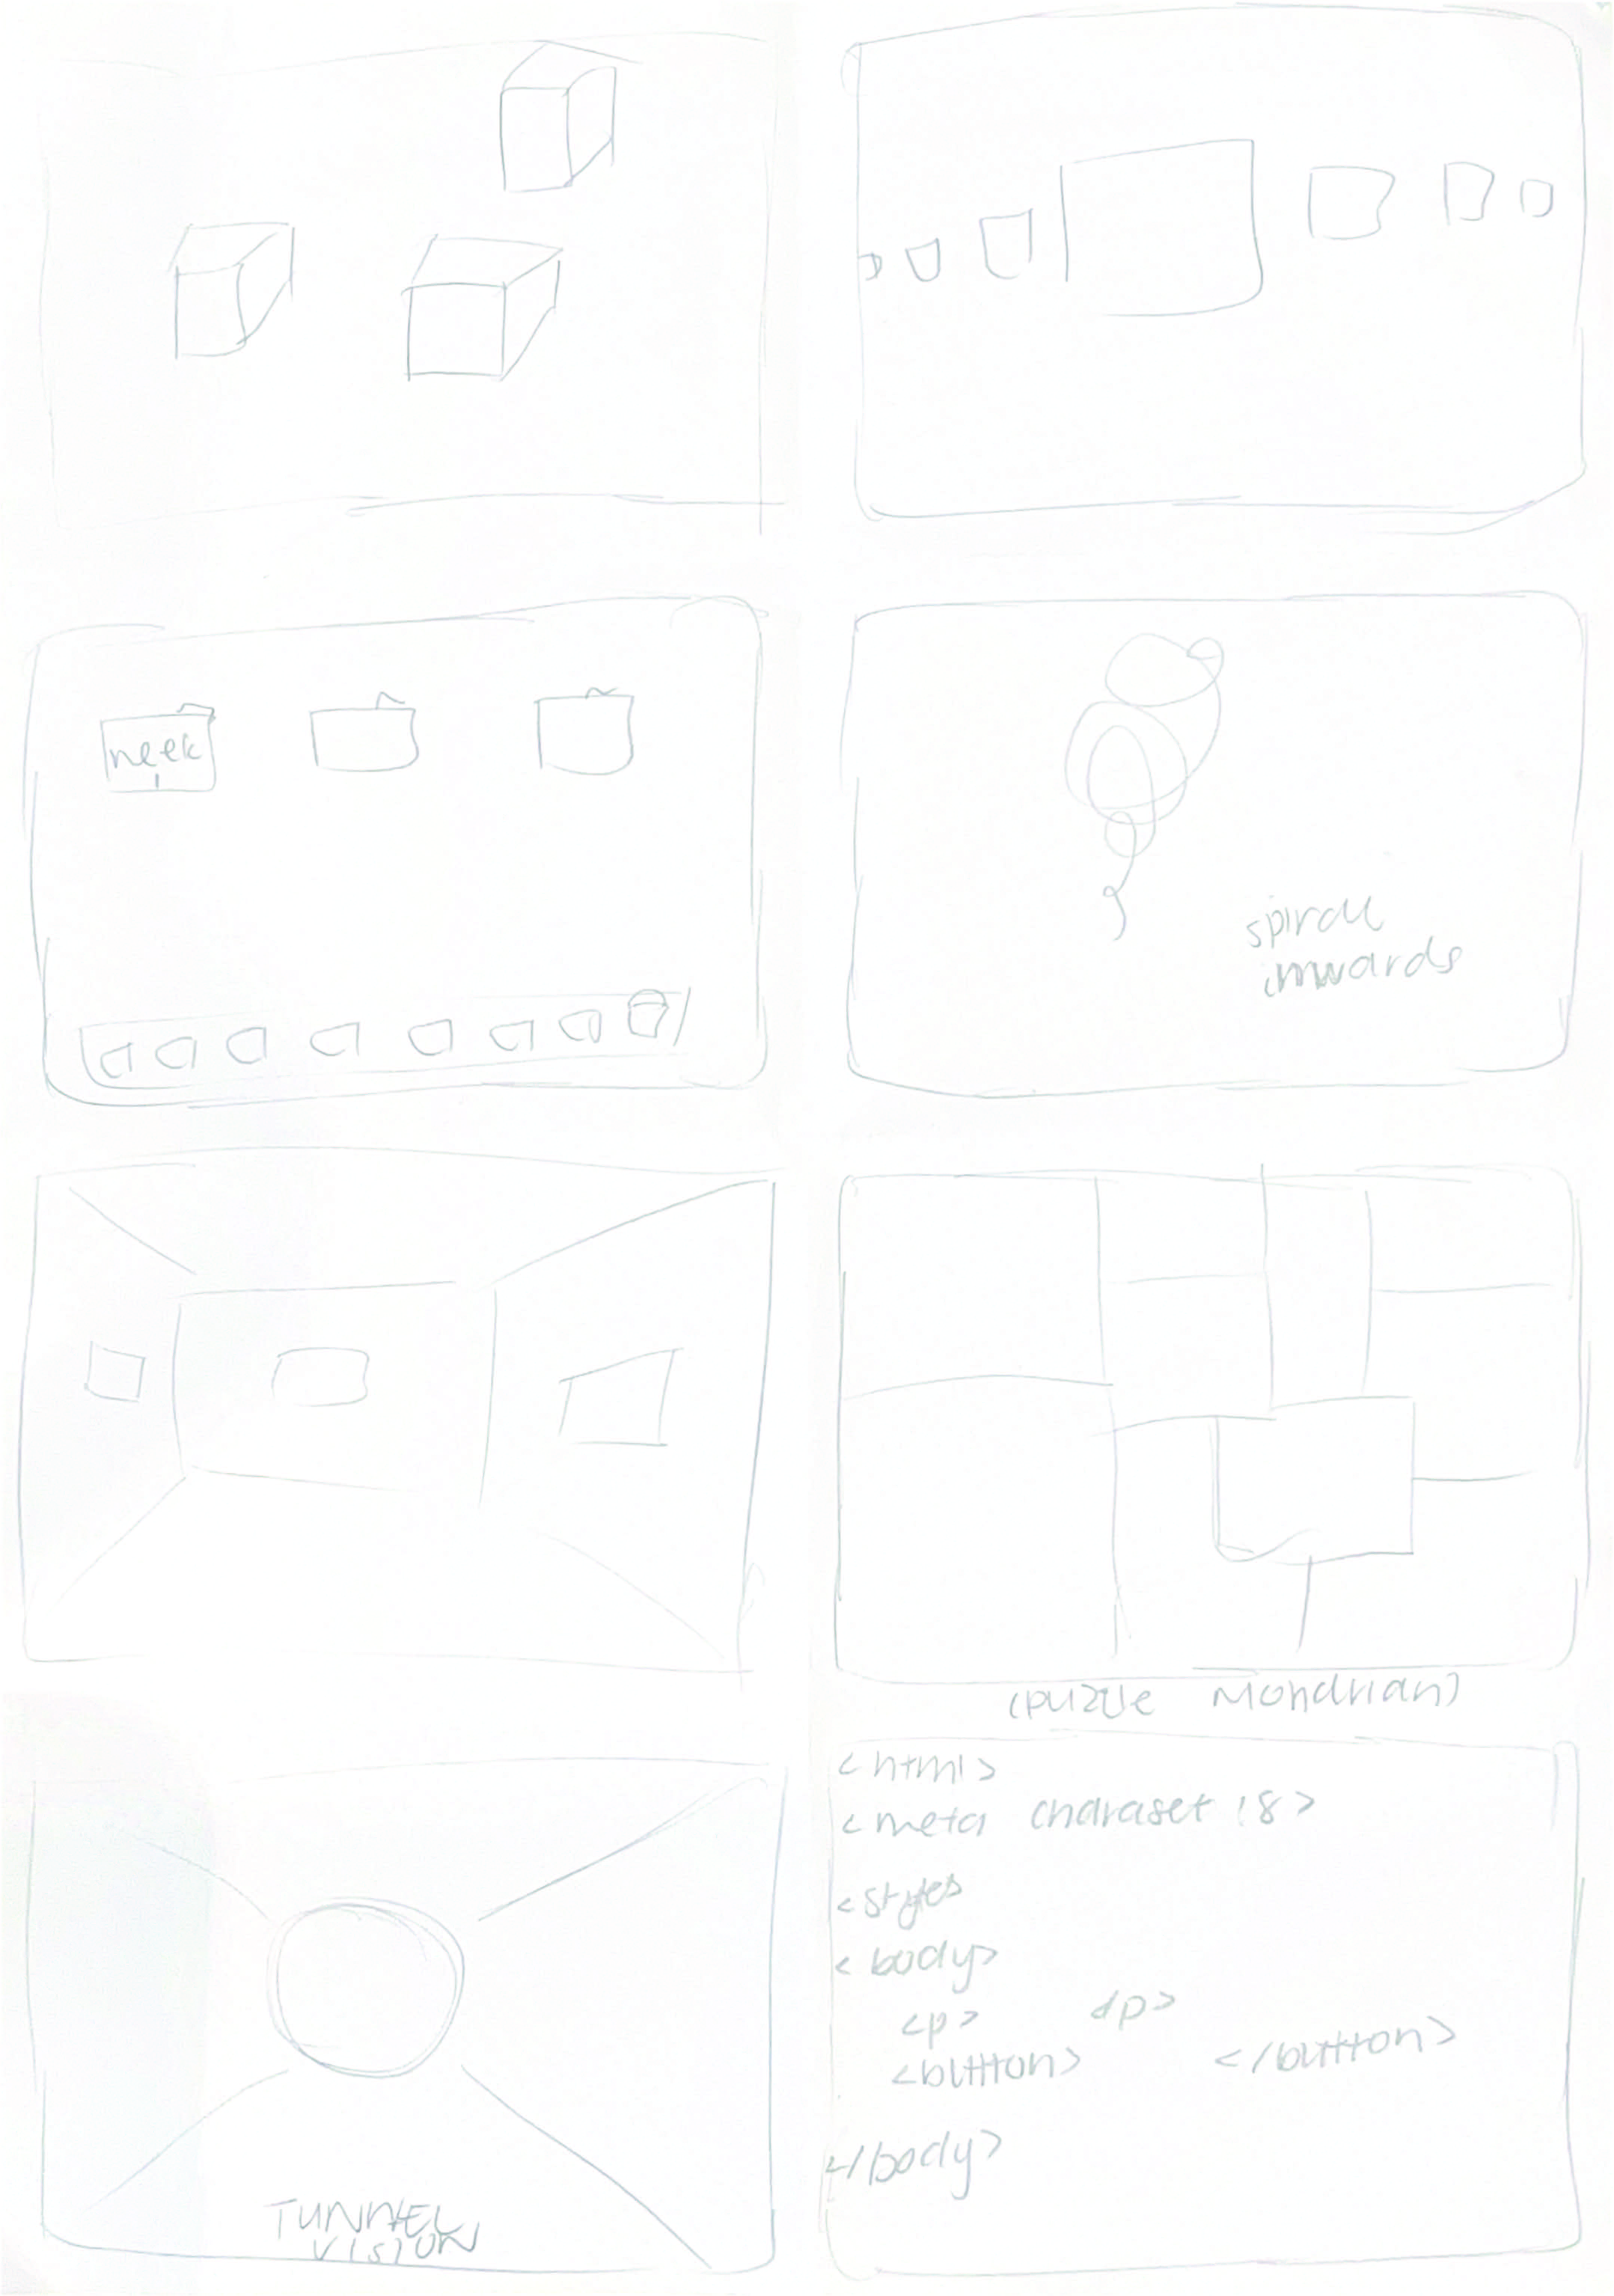 week
1
spiral
inwards
(puzzle Mondrian)
TUNNEL
VISION
<html>
<meta charaset !8>
<styles
<body>
<p> <p>
<button> </button>
</body>